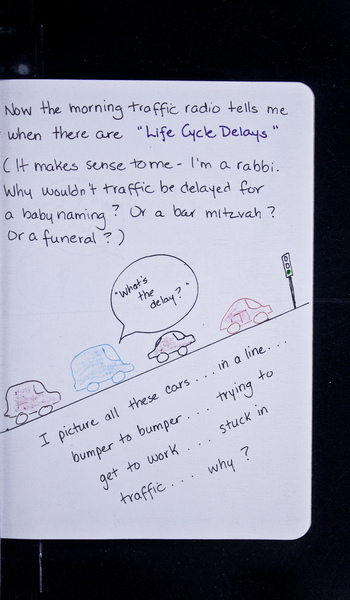 Now the morning traffic radio tells me
when there are "Life Cycle Delays"
(It makes sense to me - I'm a rabbi.
Why wouldn't traffic be delayed for
a baby naming? Or a bar mitzvah?
Or a funeral?)
"What's
the
delay?"
I picture all these cars....in a line...
bumper to bumper.... trying to
get to work.... stuck in
traffic.... why?